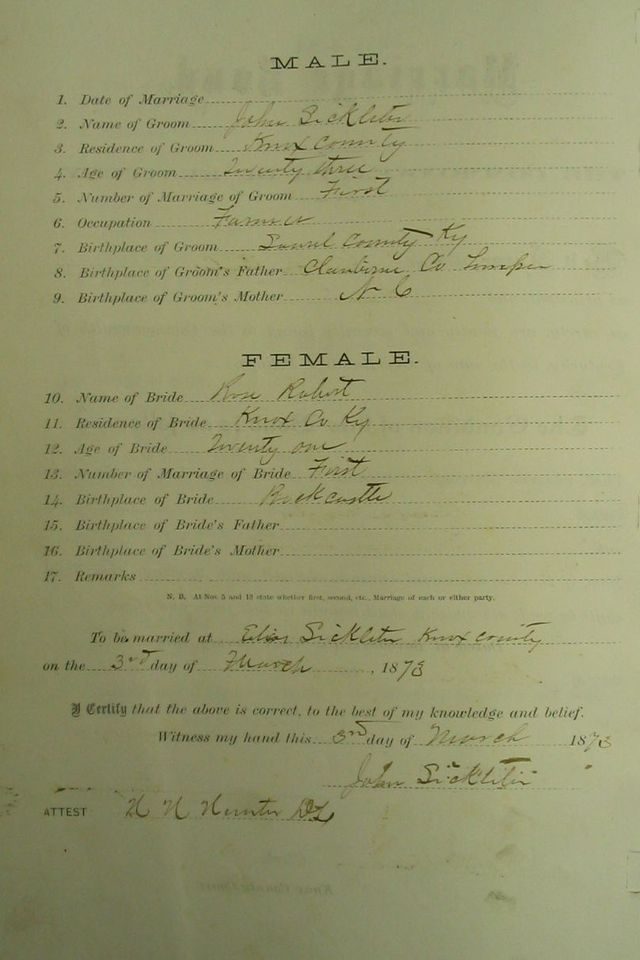 MALE.
1. Date of Marriage
2. Name of Groom John Sicklter
3. Residence of Groom Knox County
4. Age of Groom Twenty three
5. Number of Marriage of Groom First
6. Occupation Farmer
7. Birthplace of Groom Laurel County Ky
8. Birthplace of Groom's Father Claiborne Co
9. Birthplace of Groom's Mother N C
FEMALE.
10. Name of Bride Rose Robert
11. Residence of Bride Knox Co Ky
12. Age of Bride Twenty one
13. Number of Marriage of Bride First
14. Birthplace of Bride Rockcastle
15. Birthplace of Bride's Father
16. Birthplace of Bride's Mother
17. Remarks
N. B. At Nos. 5 and 13 state whether first, second, etc., Marriage of each or either party.
To be married at Elias Sicklter Knox County
on the 3rd day of March, 1873
I Certify that the above is correct, to the best of my knowledge and belief.
Witness my hand this 3rd day of March 1873
John Sicklter
ATTEST